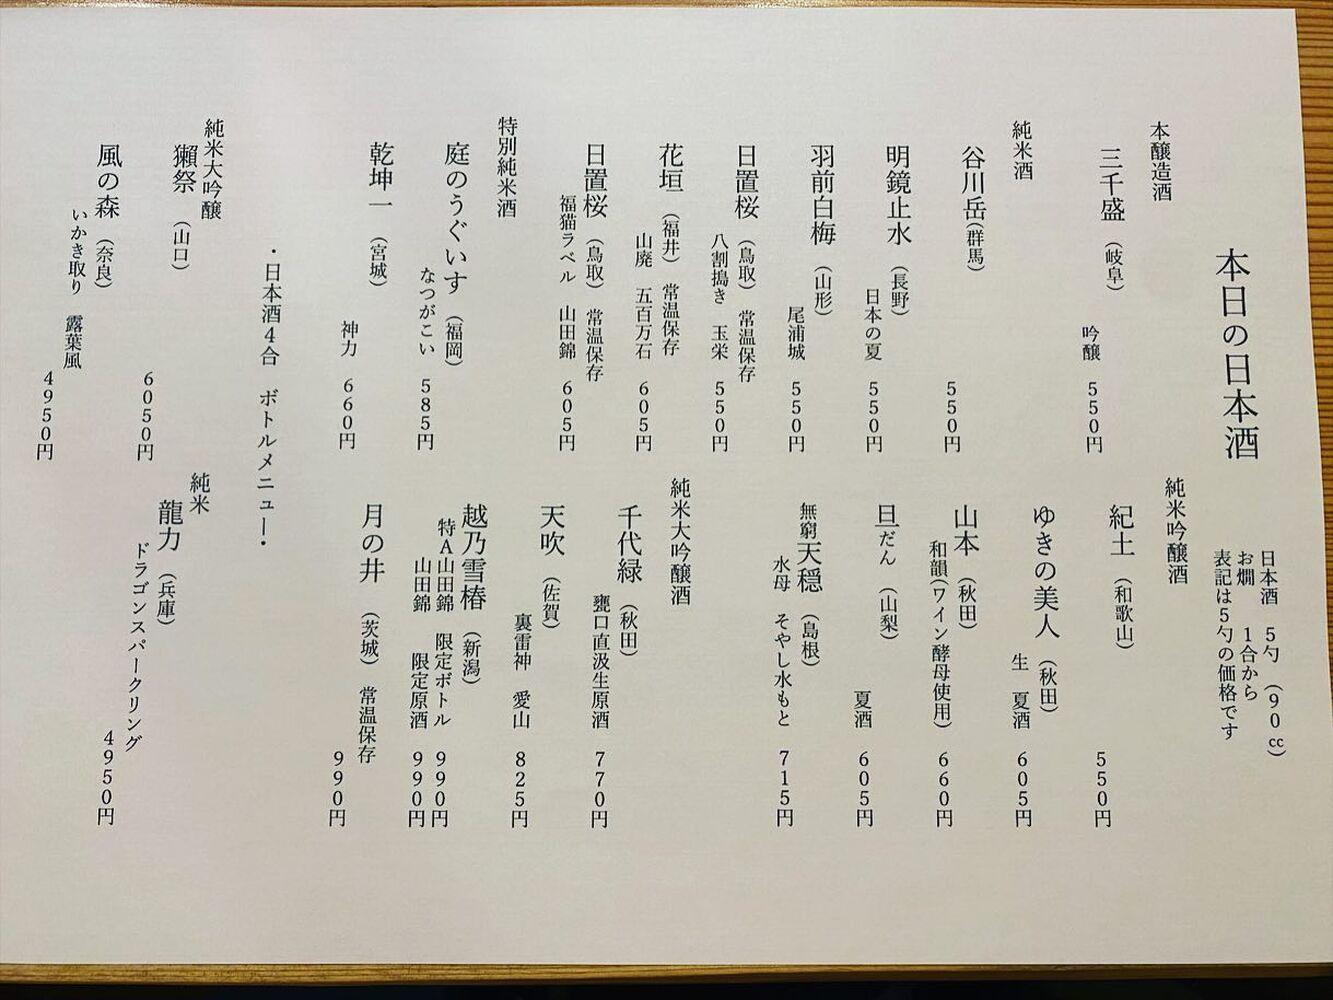 本日の日本酒
日本酒　5勺　(90cc)
お燗　1合から
表記は5勺の価格です
本醸造酒
三千盛　(岐阜)
吟醸　550円
純米酒
谷川岳(群馬)
550円
明鏡止水　(長野)
日本の夏　550円
羽前白梅　(山形)
尾浦城　550円
日置桜　(鳥取)　常温保存
八割搗き　玉栄　550円
花垣　(福井)　常温保存
山廃　五百万石　605円
日置桜　(鳥取)　常温保存
福猫ラベル　山田錦　605円
特別純米酒
庭のうぐいす　(福岡)
なつがこい　585円
乾坤一　(宮城)
神力　660円
純米吟醸酒
紀土　(和歌山)
550円
ゆきの美人　(秋田)
生　夏酒　605円
山本　(秋田)
和韻(ワイン酵母使用)　660円
旦だん　(山梨)
夏酒　605円
無窮天穏　(島根)
水母　そやし水もと　715円
純米大吟醸酒
千代緑　(秋田)
甕口直汲生原酒　770円
天吹　(佐賀)
裏雷神　愛山　825円
越乃雪椿　(新潟)
特A山田錦　限定ボトル　990円
山田錦　限定原酒　990円
月の井　(茨城)　常温保存
990円
・日本酒4合　ボトルメニュー・
純米大吟醸
獺祭　(山口)
6050円
風の森　(奈良)
いかき取り　露葉風
4950円
純米
龍力　(兵庫)
ドラゴンスパークリング
4950円